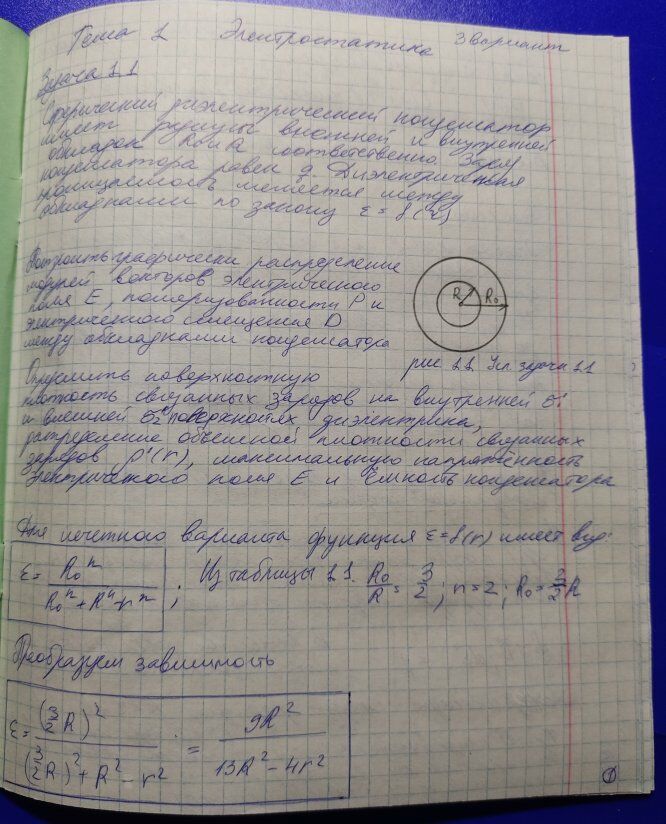 Тема 1 Электростатика 3 вариант
Задача 1.1
Сферический диэлектрический конденсатор
имеет радиусы внешней и внутренней
обкладок R₀ и R соответственно. Заряд
конденсатора равен q. Диэлектрическая
проницаемость меняется между
обкладками по закону ε = f(r)
Построить графически распределение
модулей векторов электрического
поля E, поляризованности P и
электрического смещения D
между обкладками конденсатора
R R₀
рис 1.1 Усл. задачи 1.1
Определить поверхностную
плотность связанных зарядов на внутренней σ₁'
и внешней σ₂' поверхностях диэлектрика,
распределение объемной плотности связанных
зарядов ρ'(r), максимальную напряжённость
электрического поля E и ёмкость конденсатора
Для нечетного варианта функция ε=f(r) имеет вид:
ε = R₀ⁿ / (R₀ⁿ + Rⁿ - rⁿ) ; Из таблицы 1.1. R₀/R = 3/2 ; n=2 ; R₀ = 3/2 R
Преобразуем зависимость
ε = (3/2 R)² / ((3/2 R)² + R² - r²) = 9R² / (13R² - 4r²)
1